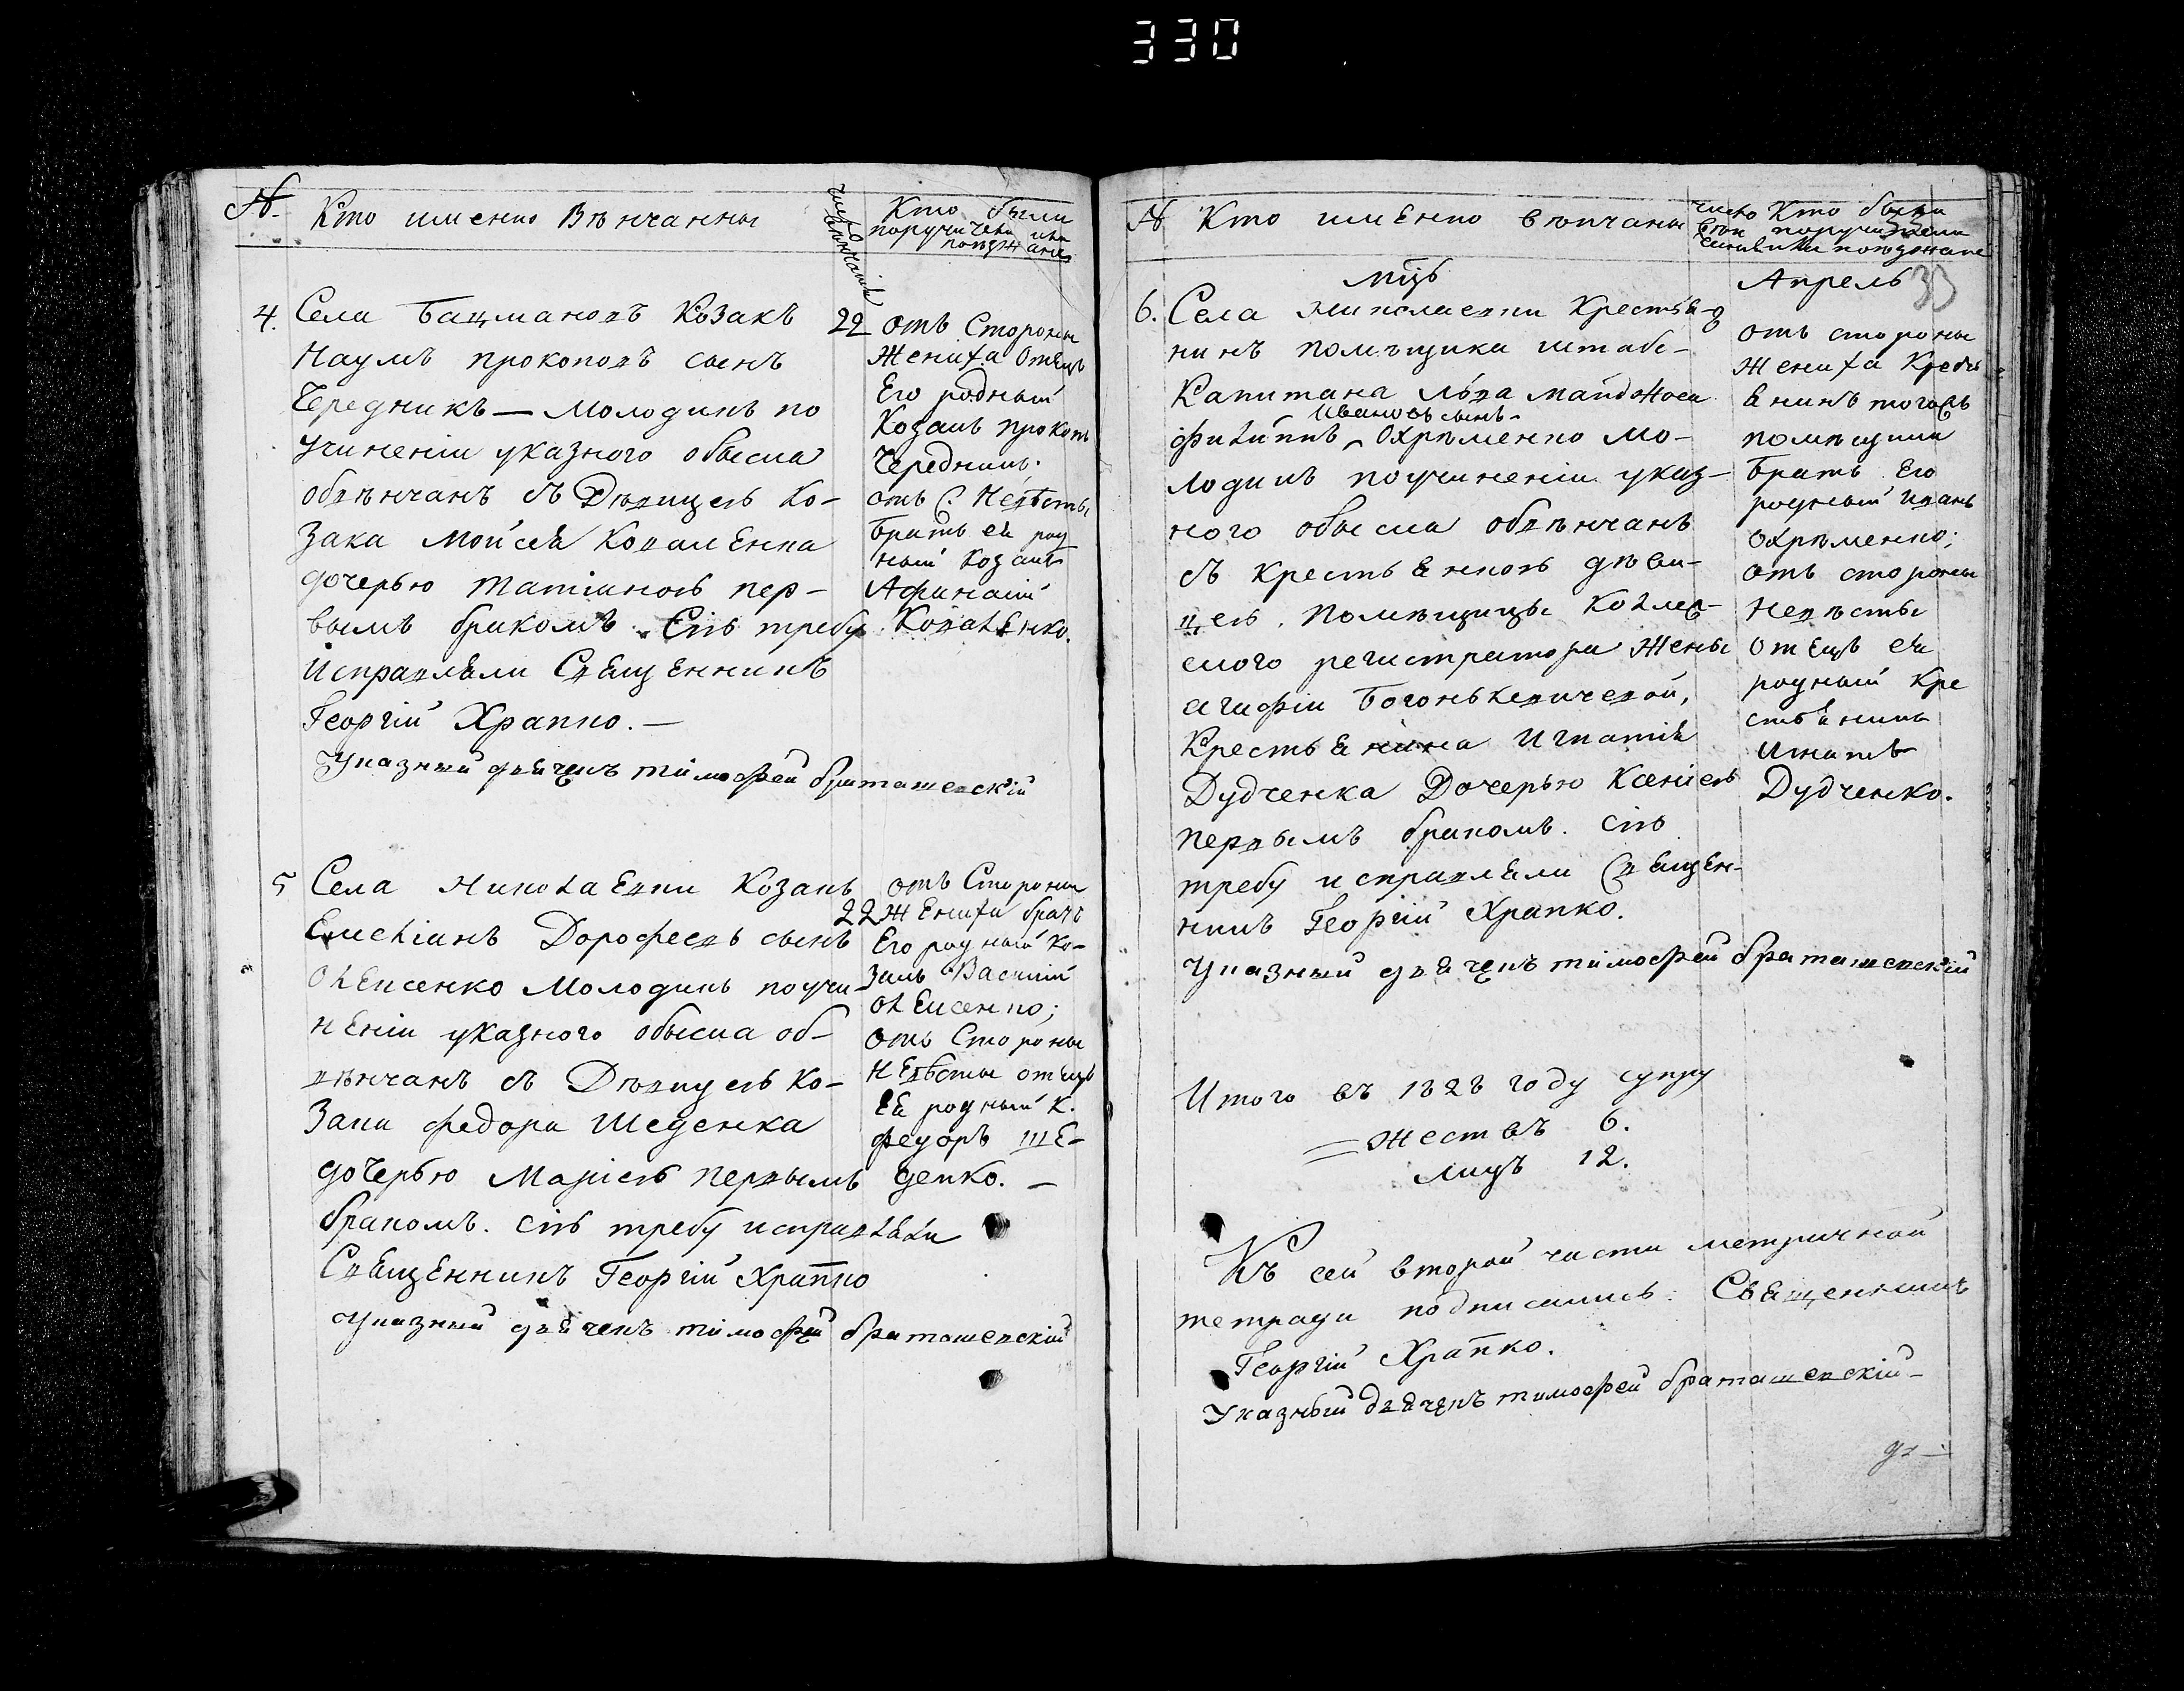 330
№ Кто именно Вѣнчанны
число вѣнчанія
Кто были
поручители или
поѣзжане
4. Села Бацмановъ Козакъ
Наумъ прокоповъ сынъ
Чередникъ — Молодикъ по
учиненіи указного обыска
обвѣнчанъ съ Дѣвицею Ко-
зака Мойсея Коваленка
дочерью Татіаною пер-
вымъ бракомъ. Сію требу
Исправляли Священникъ
Георгій Храпко. —
Указный дьячекъ тимофей браташевскій
22
отъ Стороны
Жениха Отецъ
Его родный
Козакъ прокопъ
Чередникъ.
отъ С. Невѣсты
братъ ея род
ный Козакъ
Афанасій
Коваленко.
5 Села Николаевки Козакъ
Емеліанъ Дорофеевъ сынъ
Олексенко Молодикъ по учи-
неніи указного обыска об-
вѣнчанъ съ Дѣвицею Ко-
зака федора Шеденка
дочерью Маріею первымъ
бракомъ. сію требу исправляли
Священникъ Георгій Храпко
Указный дьячекъ тимофей браташевскій
22
отъ Стороны
Жениха братъ
Его родный Ко-
закъ Василій
Олексенко;
отъ Стороны
невѣсты отецъ
Ея родный К.
федоръ Ше-
денко. —
№ Кто именно вѣнчаны
число вѣн
чанія
Кто были
поручители
или поѣзжане
Мцъ
Апрель
33
6. Села Николаевки Крестья-
нинъ помѣщика штабс-
Капитана Льва
Ивановъ сынъ
филиппъ Охрѣменко мо-
лодикъ по учиненіи указ-
ного обыска обвѣнчанъ
съ крестьянкою дѣви-
цею, помѣщицы Коллеж-
ского регистратора Жены
агафіи Богонькевичевой,
Крестьянина Игнатія
Дудченка Дочерью Ксеніею
первымъ бракомъ. сію
требу исправляли Священ-
никъ Георгій Храпко.
Указный дьячекъ тимофей браташевскій
отъ стороны
жениха Крестьь
янинъ тогожъ
помѣщика
братъ Его
родный иванъ
охрѣменко;
отъ стороны
Невѣсты
отецъ ея
родный Кре
стьянинъ
Игнатъ
Дудченко.
Итого въ 1828 году супру
=жествъ 6.
лицъ 12.
Къ сей второй части метричной
тетради подписались: Священникъ
Георгій Храпко.
Указный дьячекъ тимофей браташевскій